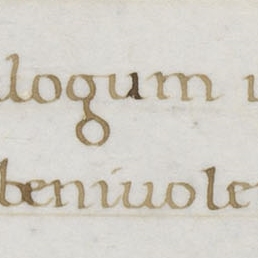 logum
beniuole